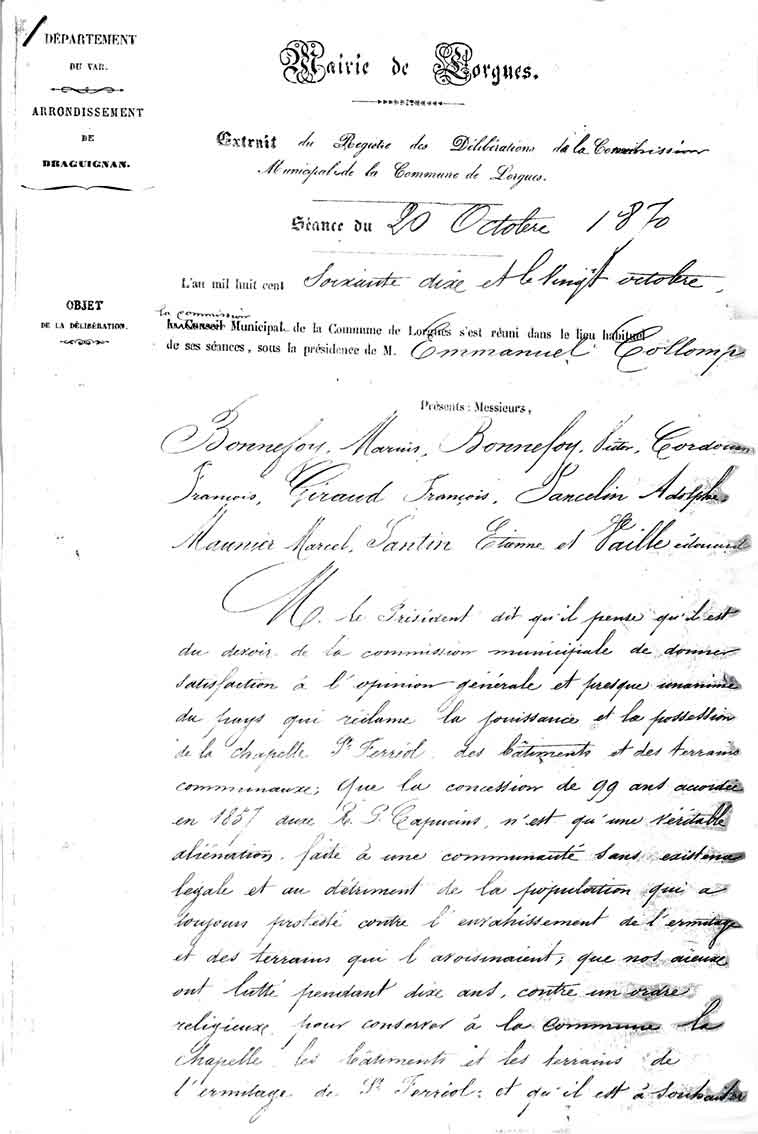 DÉPARTEMENT
DU VAR.
ARRONDISSEMENT
DE
DRAGUIGNAN.
Mairie de Lorgues.
Extrait du Registre des Délibérations de la Commission
Municipale de la Commune de Lorgues.
Séance du 20 Octobre 1870
L'an mil huit cent Soixante dixe et le vingt octobre,
OBJET
DE LA DÉLIBÉRATION.
la commission
Le Conseil Municipal de la Commune de Lorgues s'est réuni dans le lieu habituel
de ses séances, sous la présidence de M. Emmanuel Collomp
Présents : Messieurs,
Bonnefoy, Marius, Bonnefoy, Victor, Cordouan
François, Giraud François, Pancelin Adolphe,
Maunier Marcel, Pantin Etienne et Vaille édouard
M. le Président dit qu'il pense qu'il est
du devoir de la commission municipale de donner
satisfaction à l'opinion générale et presque unanime
du pays qui réclame la jouissance et la possession
de la chapelle St Ferréol, des bâtiments et des terrains
communaux; que la concession de 99 ans accordée
en 1857 aux R. P. Capucins, n'est qu'une véritable
aliénation faite à une communauté sans existence
légale et au détriment de la population qui a
toujours protesté contre l'envahissement de l'ermitage
et des terrains qui l'avoisinaient; que nos aïeux
ont lutté pendant dixe ans, contre un ordre
religieux pour conserver à la commune la
chapelle les bâtiments et les terrains de
l'ermitage de St Ferréol; et qu'il est à souhaiter